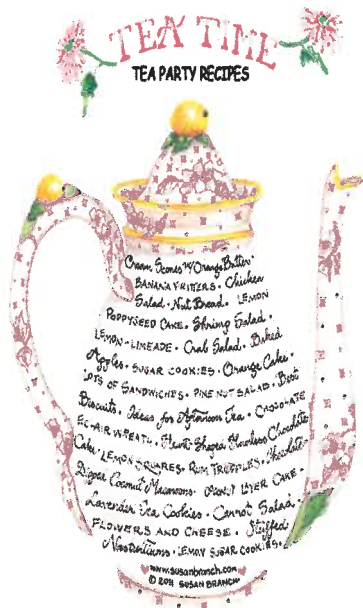 TEA TIME
TEA PARTY RECIPES
Cream Scones W/Orange Butter
BANANA FRITTERS • Chicken
Salad • Nut Bread • LEMON
POPPYSEED CAKE • Shrimp Salad •
LEMON-LIMEADE • Crab Salad • Baked
Apples • SUGAR COOKIES • Orange Cake •
LOTS OF SANDWICHES • PINE NUT SALAD • Best
Biscuits • Ideas for Afternoon Tea • CHOCOLATE
ECLAIR WREATH • Heart-Shaped Flourless Chocolate
Cake • LEMON SQUARES • RUM TRUFFLES • Chocolate
Dipped Coconut Macaroons • COCONUT LAYER CAKE •
Lavender Tea Cookies • Carrot Salad,
FLOWERS AND CHEESE • Stuffed
Nasturtiums • LEMON SUGAR COOKIES •
www.susanbranch.com
© SUSAN BRANCH